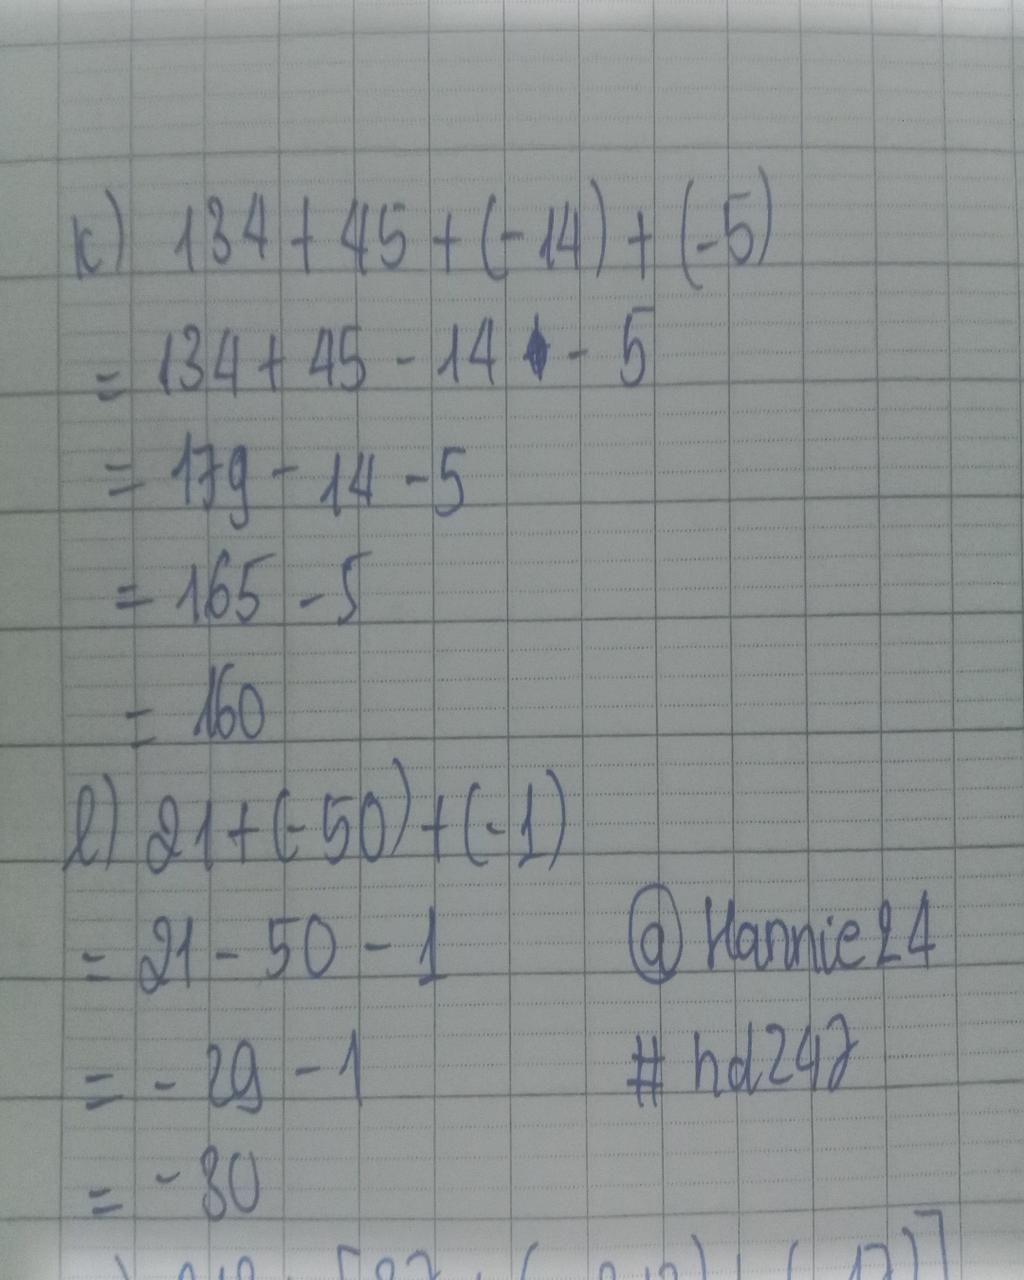 k) 134 + 45 + (-14) + (-5)
= 134 + 45 - 14 - 5
= 179 - 14 - 5
= 165 - 5
= 160
l) 21 + (-50) + (-1)
= 21 - 50 - 1
@Hannie24
= - 29 - 1
# hd247
= - 30